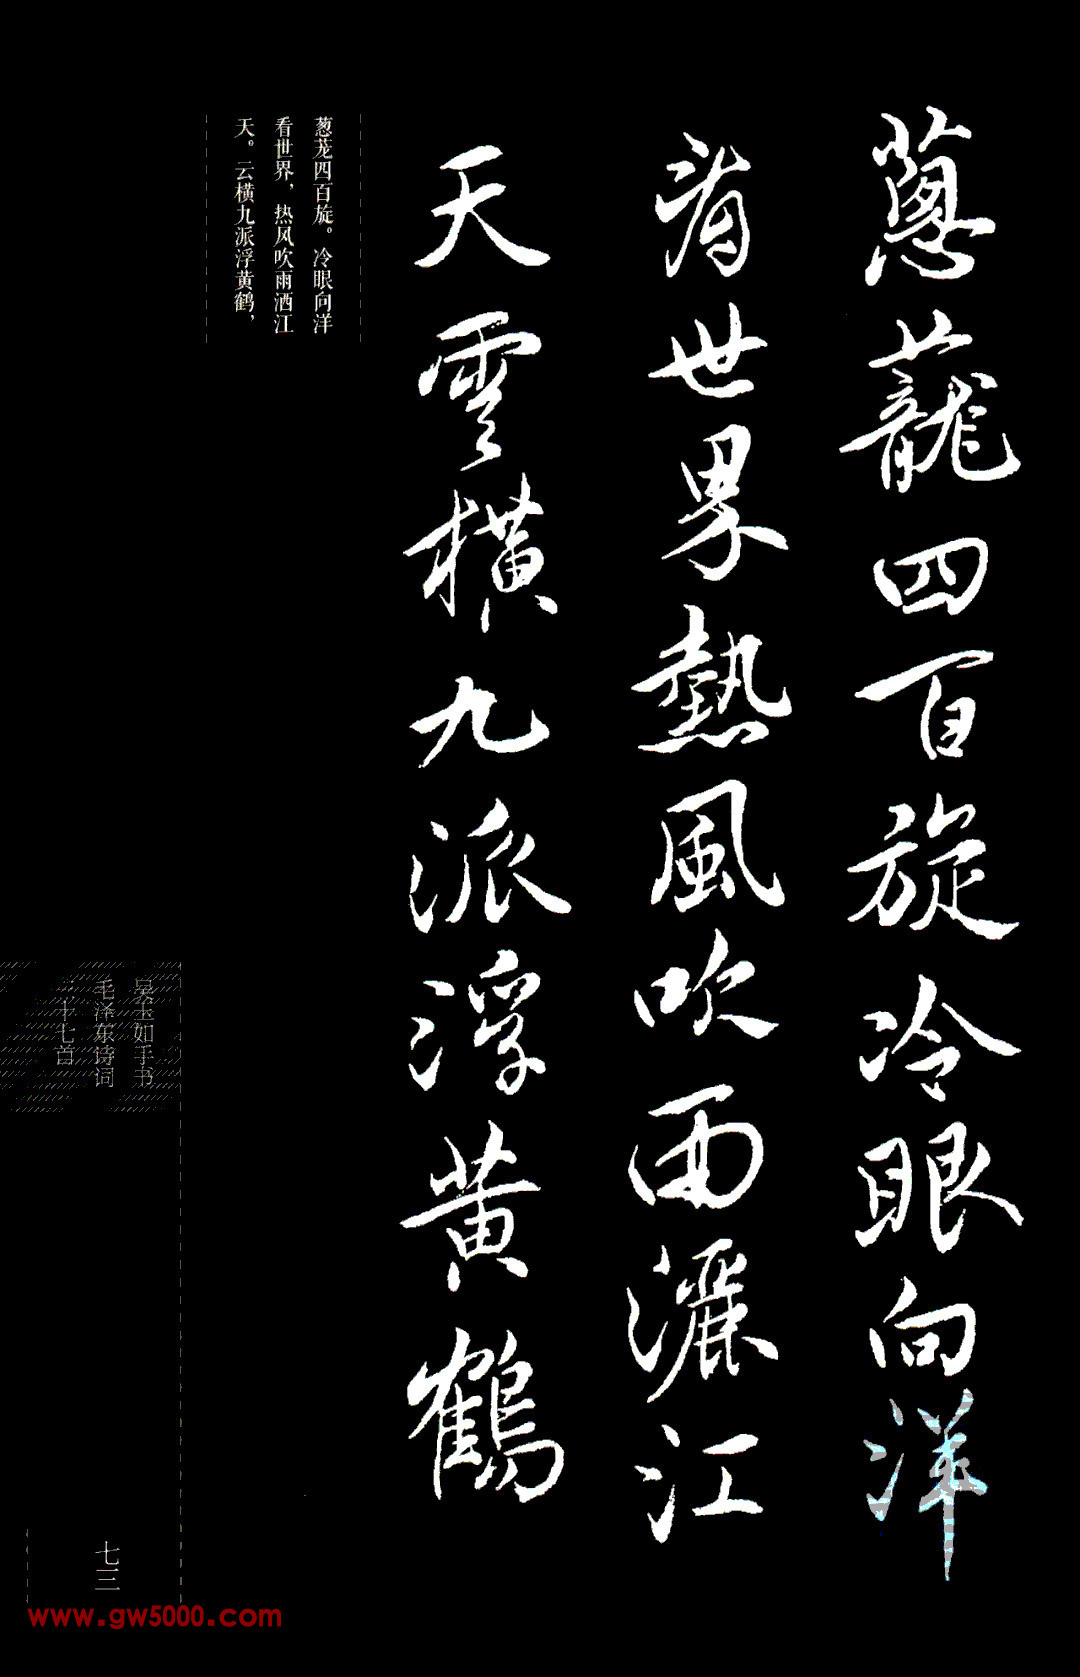 蔥蘢四百旋冷眼向洋
看世界熱風吹雨灑江
天雲橫九派浮黄鶴
葱茏四百旋。冷眼向洋
看世界，热风吹雨洒江
天。云横九派浮黄鹤，
吴玉如手书
毛泽东诗词
三十七首
七三
www.gw5000.com